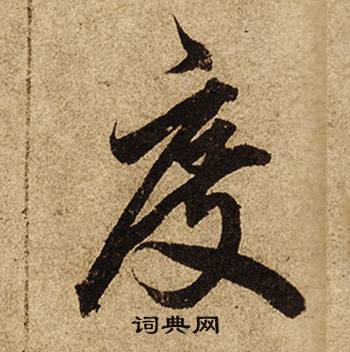 度
词典网